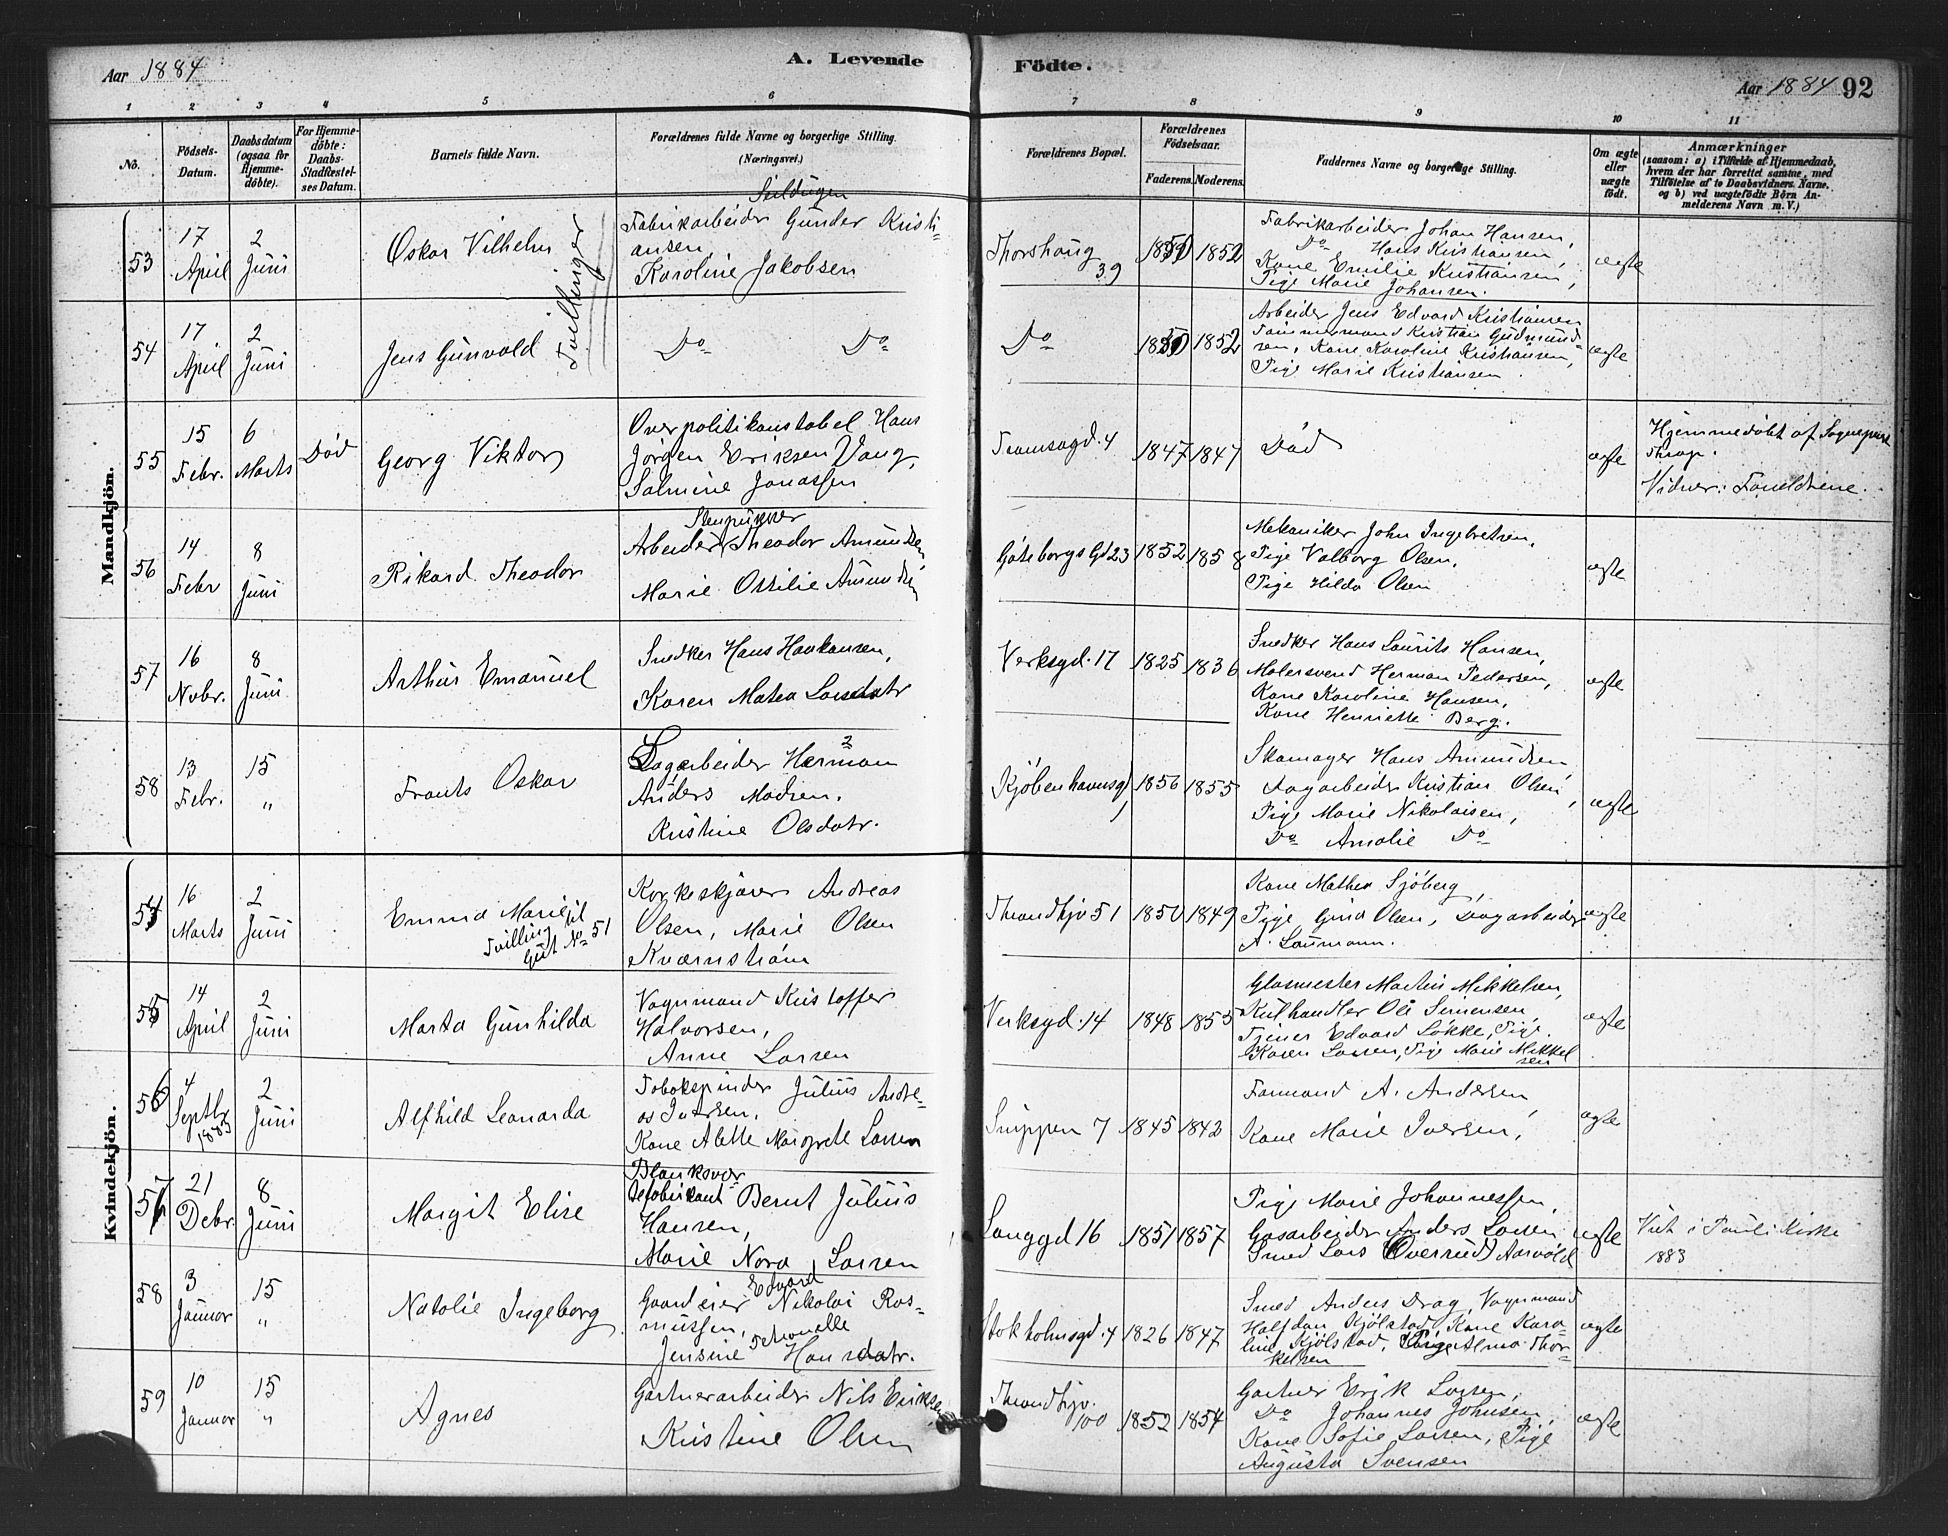 Aar 1884
A. Levende
1 2 3 4 5 6
No.
Födsels-
Datum.
Daabsdatum
(ogsaa for
Hjemme-
döbte).
For Hjemme-
döbte:
Daabs-
Stadfæstel-
ses Datum.
Barnets fulde Navn.
Forældrenes fulde Navne og borgerlige Stilling.
(Næringsvei.)
Mandkjön.
53
17
April
2
Juni
Oskar Vilhelm
Tvillinger
Fabrikarbeider Gunder Kristi-
ansen
Karoline Jakobsen
54
17
April
2
Juni
Jens Gunvald
Do Do
55
15
Febr.
6
Marts
Död
Georg Viktor
Overpolitikonstabel Hans
Jörgen Eriksen Vang,
Salmine Jonassen
56
14
Febr
8
Juni
Rikard Theodor
Stenpukker
Arbeider Theodor Amundsen
Marie Ottilie Amundsen
57
16
Novbr.
8
Juni
Arthur Emanuel
Snedker Hans Haakansen,
Karen Matea Larsdatr
58
13
Febr.
15
"
Frants Oskar
Dagarbeider Herman
Anders Madsen.
Kristine Olsdatr.
Kvindekjön.
54
16
Marts
2
Juni
Emma Marie
Tvilling til
Gut No 51
Korkeskjærer Andreas
Olsen, Marie Olsen
Kværnström
55
14
April
2
Juni
Marta Gunhilda
Vognmand Kristoffer
Halvorsen,
Anne Larsen
56
4
Septbr
1883
2
Juni
Alfhild Leonarda
Tobakspinder Julius Andre-
as Iversen.
Kone Alette Margrete Larsen
57
21
Debr.
8
Juni
Margit Elise
Blanksvær-
tefabrikant Bernt Julius
Hansen,
Marie Nora Larsen
58
3
Januar
15
"
Natalie Ingeborg
Edvard
Gaardeier Nikolai Ras-
mussen,
Jensine Hansdatr.
59
10
Januar
15
"
Agnes
Gartnerarbeider Nils Eriksen
Kristine Olsen
Födte.
Aar 1884 92
7 8 9 10 11
Forældrenes Bopæl.
Forældrenes
Födselsaar.
Faderens. Moderens.
Faddernes Navne og borgerlige Stilling.
Om ægte
eller
uægte
födt.
Anmærkninger
(saasom: a) i Tilfælde af Hjemmedaab,
hvem der har forrettet samme, med
Tilföielse af to Daabsvidners Navne,
og b) ved uægtefödte Börn An-
melderens Navn m. V.)
Thorshaug
39
1852
Fabrikarbeider Johan Hansen,
Do Hans Kristiansen,
Kone Emilie Kristiansen,
Pige Marie Johansen.
ægte
Do
1852
Arbeider Jens Edvard Kristiansen
Tömmermand Kristian Gudmund-
sen, Kone Karoline Kristiansen,
Pige Marie Kristiansen.
ægte
Tromsögd. 4
1847 1847
Död
ægte
Hjemmedöbt af Sognepræst
Thrap.
Vidner: Forældrene.
Göteborgs Gd 23
1852 1858
Mekaniker John Ingebretsen,
Pige Valborg Olsen,
Pige Hilda Olsen
ægte
Verksgd. 17
1825 1836
Snedker Hans Laurits Hansen,
Malersvend Herman Pedersen,
Kone Karoline Hansen,
Kone Henriette Berg.
ægte
Kjöbenhavnsgd
1
1856 1855
Skomager Hans Amundsen,
Dagarbeider Kristian Olsen,
Pige Marie Nikolaisen,
Do Amalie Do
ægte
Throndhjv 51
1850 1849
Kone Mathea Sjöberg,
Pige Gina Olsen, Dagarbeider
A. Laumann.
ægte
Verksgd. 14
1848 1855
Glasmester Martin Mikkelsen,
Kulhandler Ole Simensen,
Tjener Edvard Løkke, Pige
Karen Larsen, Pige Marie Mikkel
sen
ægte
Snippen 7
1845 1842
Formand A. Andersen,
Kone Marie Iversen,
ægte
Langgd 16
1851 1857
Pige Marie Johannessen,
Gasarbeider Anders Larsen
Smed Lars Overrud Aarvold
ægte
Viet i Pauli Kirke
1883
Stokholmsgd. 4
1826 1847
Smed Anders Drag, Vognmand
Halfdan Kjölstad, Kone Karo-
line Kjölstad, Pige Alma Thor-
kelsen
ægte
Throndhjv.
100
1852 1854
Gartner Erik Larsen,
Do Johannes Johnsen,
Kone Sofie Larsen, Pige
Augusta Svensen
ægte